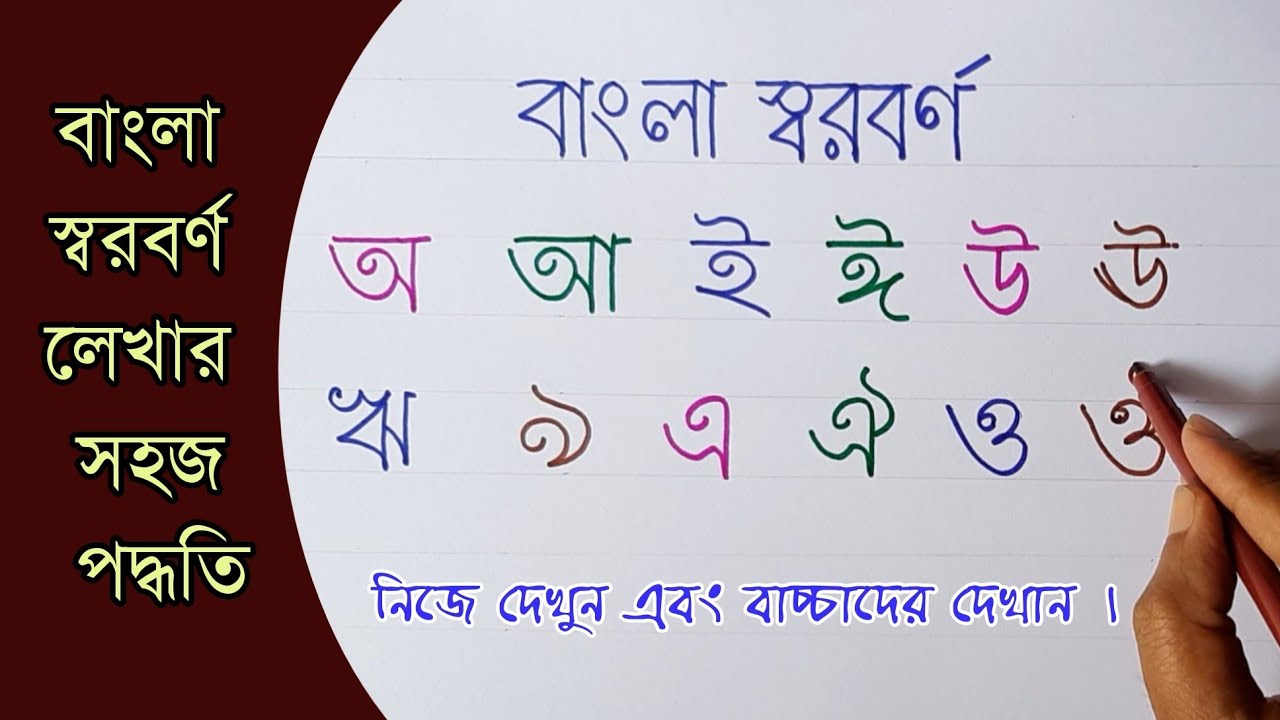 বাংলা
স্বরবর্ণ
লেখার
সহজ
পদ্ধতি
বাংলা স্বরবর্ণ
অ আ ই ঈ উ ঊ
ঋ ঌ এ ঐ ও ও
নিজে দেখুন এবং বাচ্চাদের দেখান ।